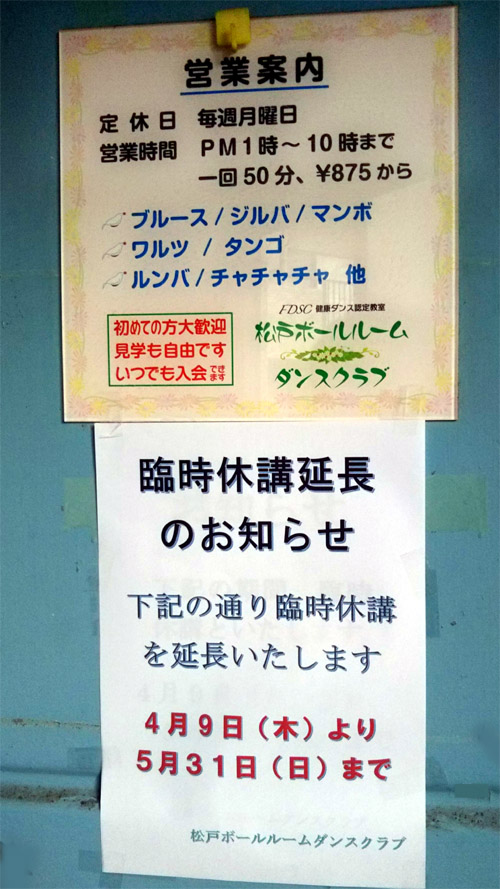 営業案内
定休日 毎週月曜日
営業時間 PM1時～10時まで
一回50分、¥875から
ブルース/ジルバ/マンボ
ワルツ / タンゴ
ルンバ/チャチャチャ 他
初めての方大歓迎
見学も自由です
いつでも入会できます
FDSC 健康ダンス認定教室
松戸ボールルーム
ダンスクラブ
臨時休講延長
のお知らせ
下記の通り臨時休講
を延長いたします
4月9日（木）より
5月31日（日）まで
松戸ボールルームダンスクラブ